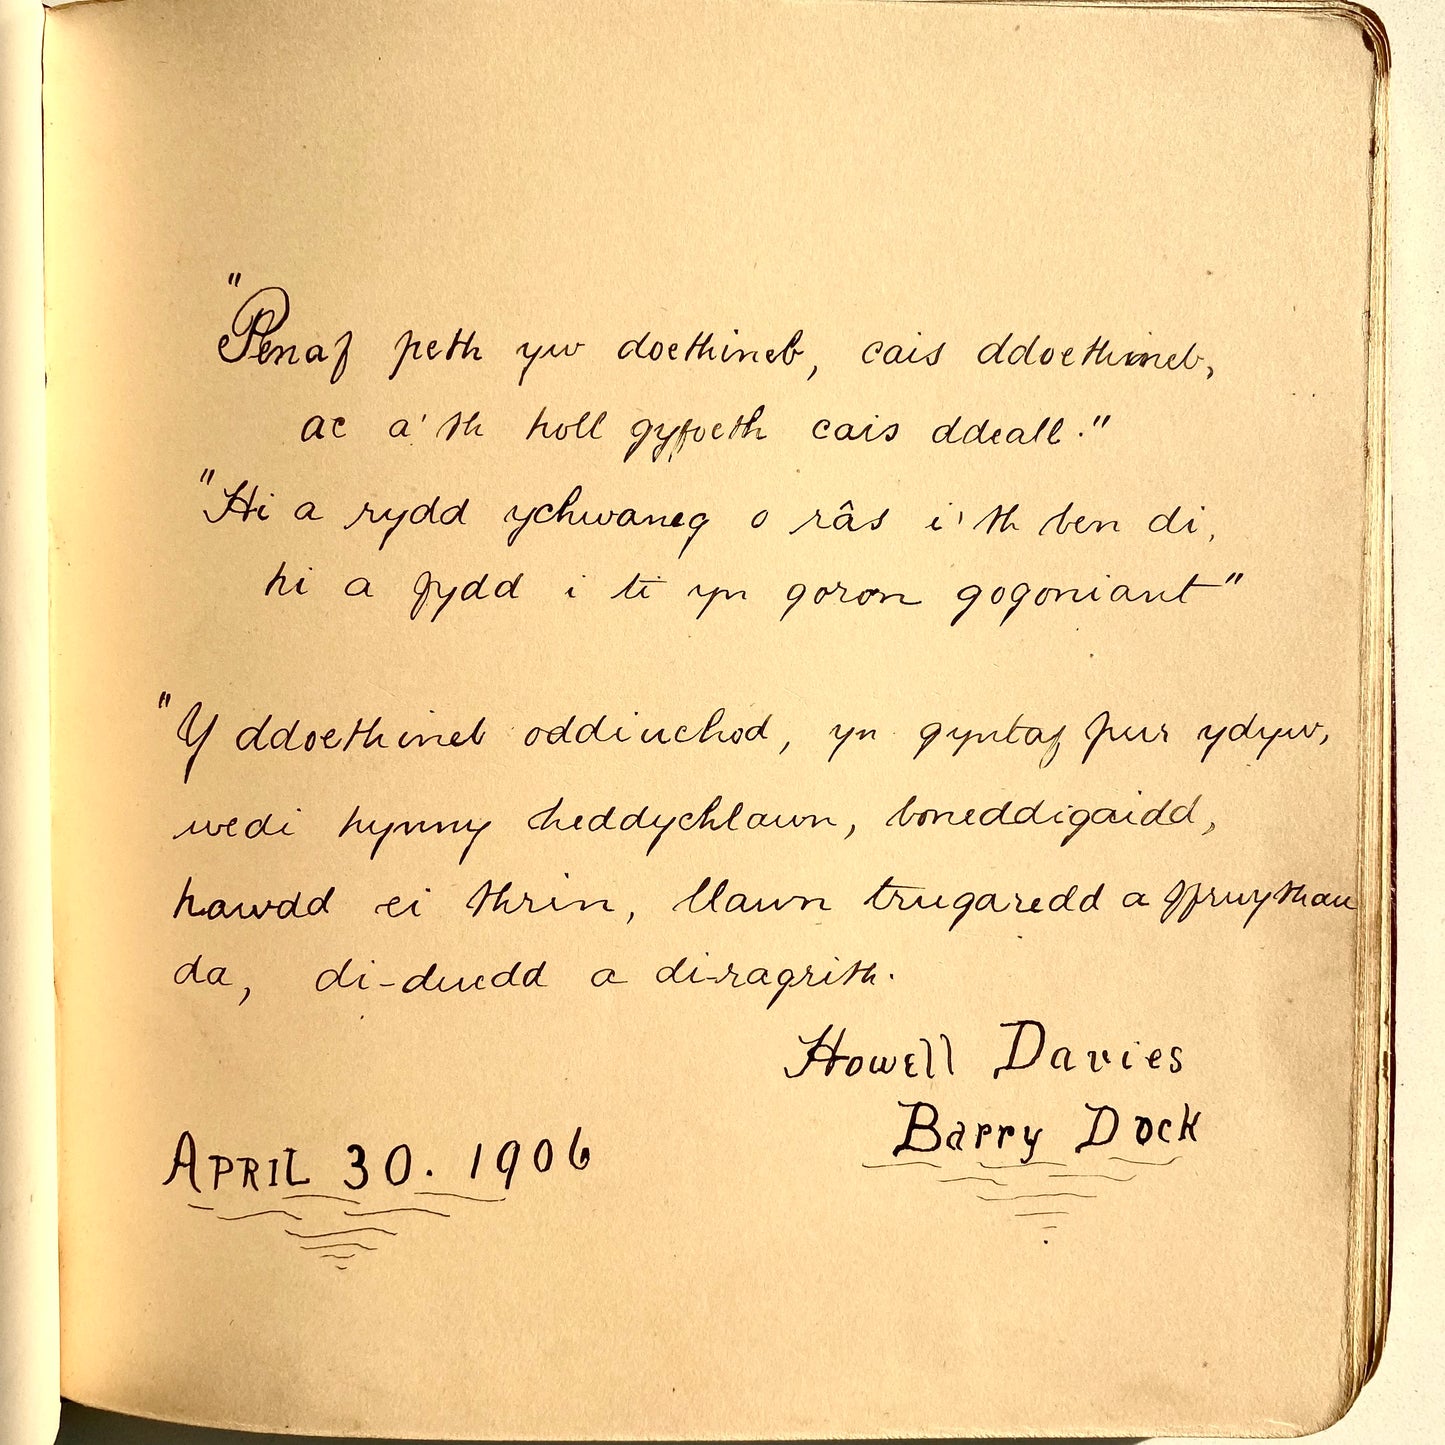 "Penaf peth yw doethineb, cais ddoethineb,
ac a'th holl gyfoeth cais ddeall."
"Hi a rydd ychwaneg o râs i'th ben di,
hi a fydd i ti yn goron gogoniant"
"Y ddoethineb oddiuchod, yn gyntaf pur ydyw,
wedi hynny heddychlawn, boneddigaidd,
hawdd ei thrin, llawn trugaredd a ffrwythau
da, di-duedd a di-ragrith.
Howell Davies
Barry Dock
APRIL 30. 1906